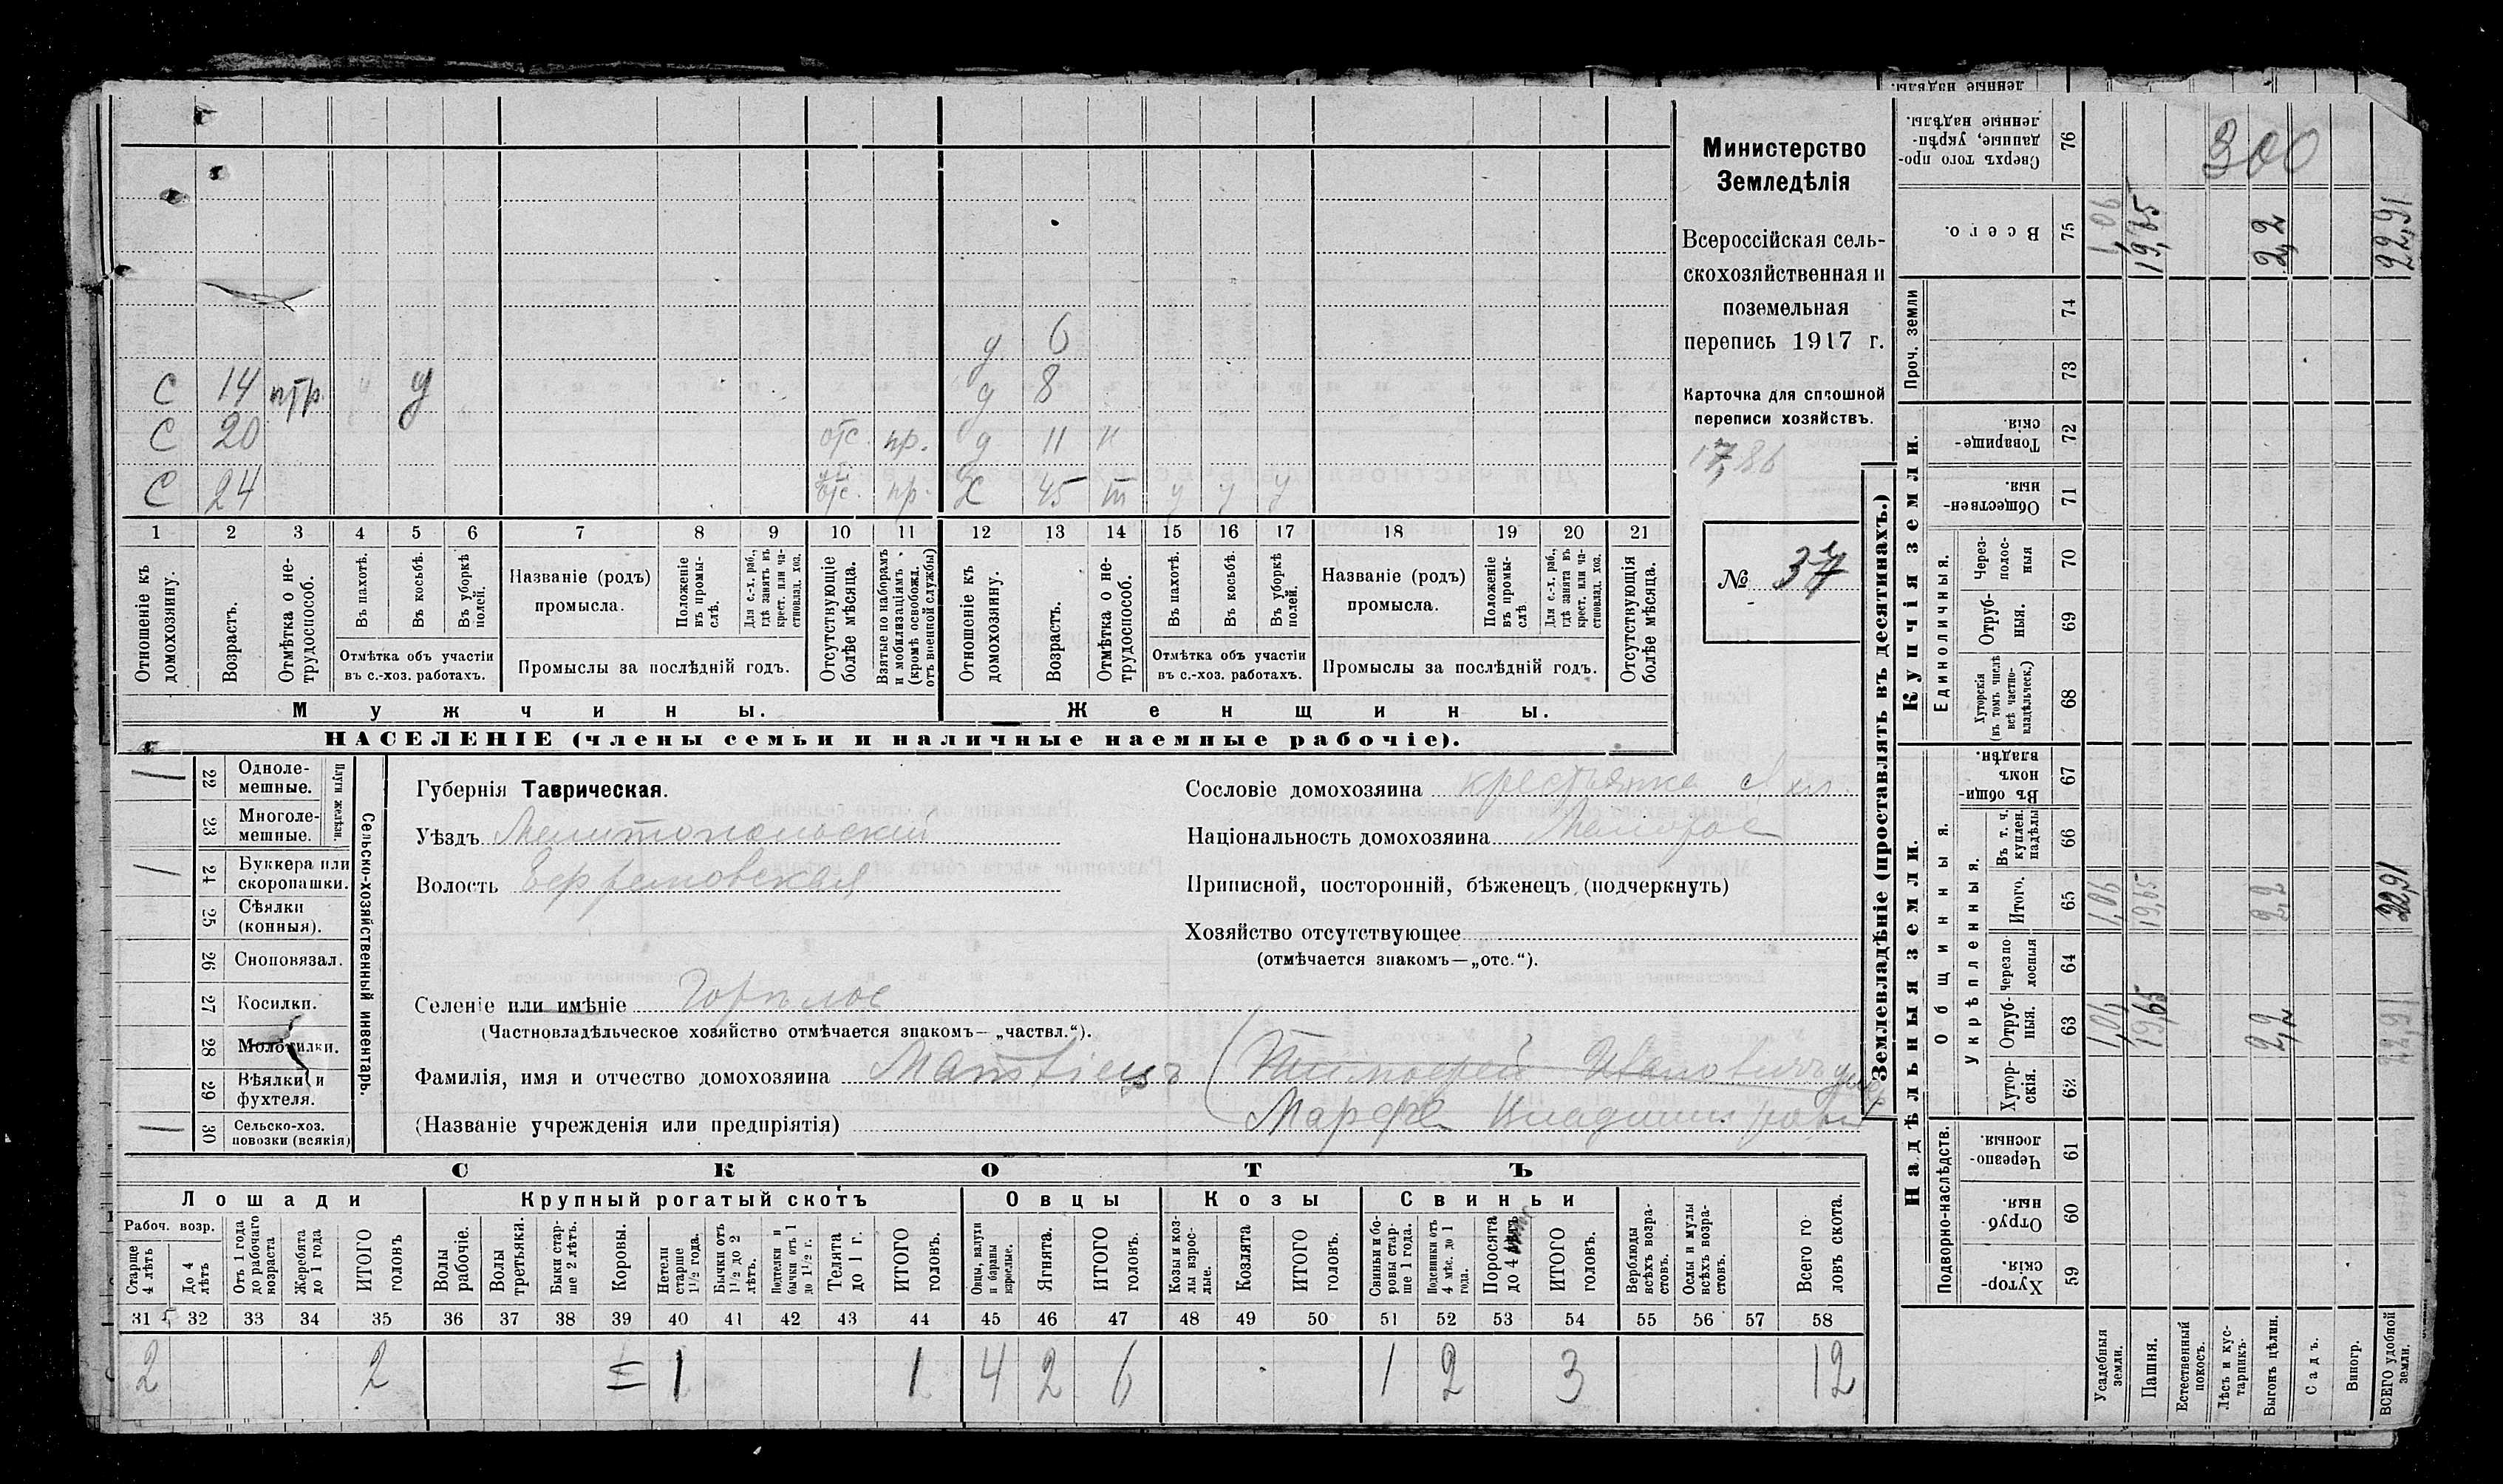 Министерство
Земледѣлія
Всероссійская сель-
скохозяйственная и
поземельная
перепись 1917 г.
Карточка для сплошной
переписи хозяйствъ.
1786
№ 37
д 6
С 14 птр. у д 8
С 20 отс. пр. д 11 н
С 24 отс. пр. Х 45 т у у у
1 2 3 4 5 6 7 8 9 10 11 12 13 14 15 16 17 18 19 20 21
Отношеніе къ домохозяину.
Возрастъ.
Отмѣтка о не-трудоспособ.
Въ пахотѣ.
Въ косьбѣ.
Въ уборкѣ полей.
Отмѣтка объ участіи
въ с.-хоз. работахъ.
Названіе (родъ)
промысла.
Положеніе въ промы-слѣ.
Для с.-х. раб., гдѣ занятъ въ крест. или ча-стновлад. хоз.
Промыслы за послѣдній годъ.
Отсутствующіе болѣе мѣсяца.
Взятые по наборамъ и мобилизаціямъ (кромѣ освобожд. отъ военной службы)
Отношеніе къ домохозяину.
Возрастъ.
Отмѣтка о не-трудоспособ.
Въ пахотѣ.
Въ косьбѣ.
Въ уборкѣ полей.
Отмѣтка объ участіи
въ с.-хоз. работахъ.
Названіе (родъ)
промысла.
Положеніе въ промы-слѣ.
Для с.-х. раб., гдѣ занята въ крест. или ча-стновлад. хоз.
Промыслы за послѣдній годъ.
Отсутствующія болѣе мѣсяца.
Мужчины. Женщины.
НАСЕЛЕНІЕ (члены семьи и наличные наемные рабочіе).
Сельско-хозяйственный инвентарь.
Плуги желѣзн.
/ 22 Одноле-мешные.
23 Многоле-мешные.
/ 24 Буккера или скоропашки.
25 Сѣялки (конныя).
26 Сноповязал.
27 Косилки.
28 Молотилки.
29 Вѣялки и фухтеля.
/ 30 Сельско-хоз. повозки (всякія)
Губернія Таврическая.
Уѣздъ Мелитопольскій
Волость
Селеніе или имѣніе Горѣлое
(Частновладѣльческое хозяйство отмѣчается знакомъ—„частвл.“).
Фамилія, имя и отчество домохозяина Тимофей Ивановичъ
(Названіе учрежденія или предпріятія) Марфа
Сословіе домохозяина крестьянка
Національность домохозяина Малорос
Приписной, посторонній, бѣженецъ (подчеркнуть)
Хозяйство отсутствующее
(отмѣчается знакомъ—„отс.“).
СКОТЪ
Лошади Крупный рогатый скотъ Овцы Козы Свиньи
Рабоч. возр.
Старше 4 лѣтъ
До 4 лѣтъ
Отъ 1 года до рабочаго возраста
Жеребята до 1 года
ИТОГО головъ
Волы рабочіе.
Волы третьяки.
Быки стар-ше 2 лѣтъ.
Коровы.
Нетели старше 1½ года.
Бычки отъ 1½ до 2 лѣтъ.
Подтелки и бычки отъ 1 до 1½ г.
Телята до 1 г.
ИТОГО головъ.
Овцы, валухи и бараны взрослые.
Ягнята.
ИТОГО головъ.
Козы и коз-лы взрос-лые.
Козлята
ИТОГО головъ.
Свиньи и бо-ровы стар-ше 1 года.
Подсвинки отъ 4 мѣс. до 1 года.
Поросята до 4
ИТОГО головъ.
Верблюды всѣхъ возра-стовъ.
Ослы и мулы всѣхъ возра-стовъ.
Всего го-ловъ скота.
31 32 33 34 35 36 37 38 39 40 41 42 43 44 45 46 47 48 49 50 51 52 53 54 55 56 57 58
2 2 1 1 4 2 6 1 2 3 12
Землевладѣніе (проставлять въ десятинахъ.)
Купчія земли.
Надѣльныя земли.
Сверхъ того про-данные, укрѣп-ленные надѣлы. 76 300
Всего. 75 1,06 19,65 2,2 22,91
Проч. земли
74
73
Товарище-скія. 72
Обществен-ныя. 71
Единоличныя.
Через-полос-ныя 70
Отруб-ныя. 69
Хуторскія (въ томъ числѣ всѣ частно-владѣльческ.) 68
Общинныя.
Въ общин-номъ владѣн. 67
Укрѣпленныя.
Въ т. ч. куплен. надѣлы 66
Итого. 65 1,06 19,65 2,2 22,91
Черезпо-лосныя 64
Отруб-ныя. 63 1,06 19,65 2,2 22,91
Хутор-скія. 62
Подворно-наслѣдств.
Черезпо-лосныя. 61
Отруб-ныя. 60
Хутор-скія. 59
Усадебныя земли.
Пашня.
Естественный покосъ.
Лѣсъ и кус-тарникъ.
Выгонъ цѣлин.
Садъ.
Виногр.
ВСЕГО удобной земли.